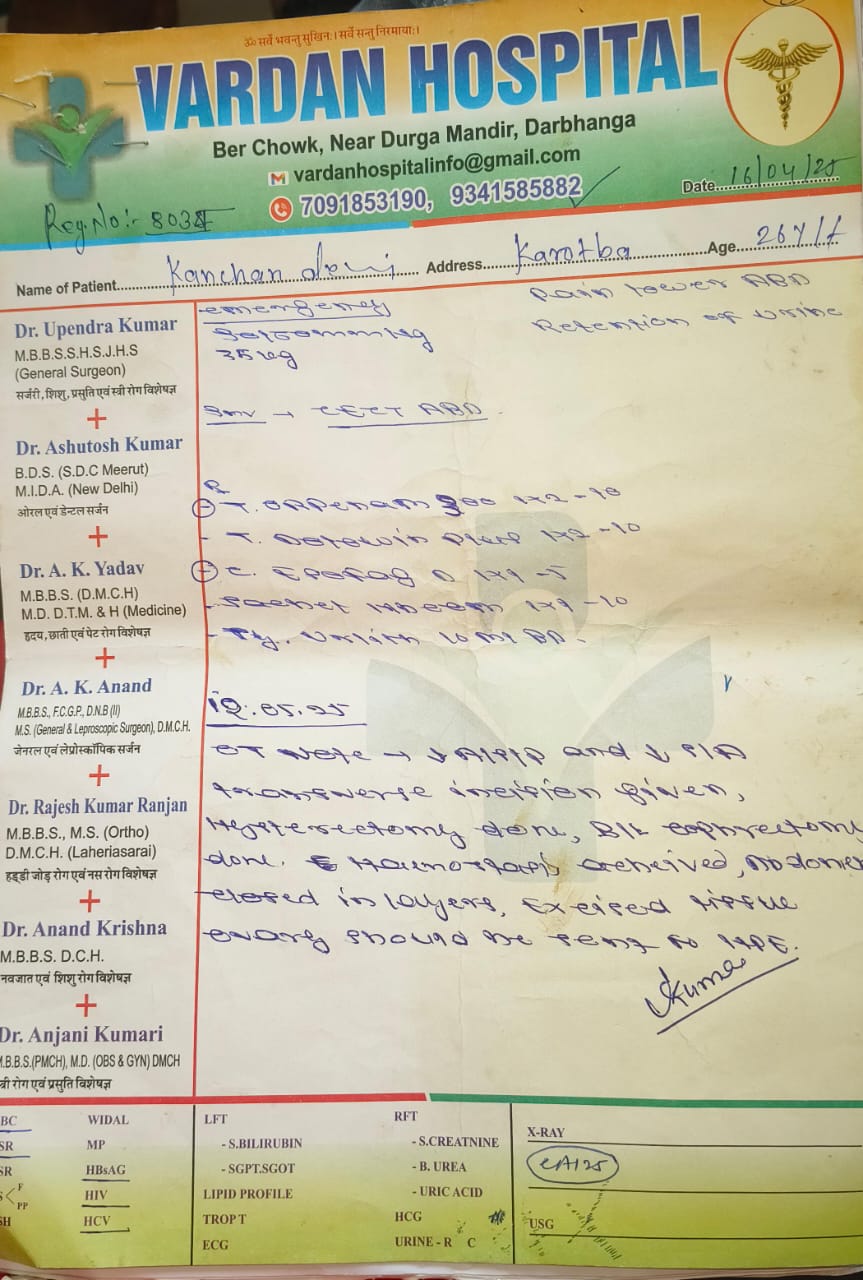 ॐ सर्वे भवन्तु सुखिनः। सर्वे सन्तु निरमायाः।
VARDAN HOSPITAL
Ber Chowk, Near Durga Mandir, Darbhanga
vardanhospitalinfo@gmail.com
7091853190, 9341585882
Date 16/04/25
Reg. No:-
Name of Patient Kanchan devi Address Karotba Age 26Y/f
Dr. Upendra Kumar
M.B.B.S.S.H.S.J.H.S
(General Surgeon)
सर्जरी, शिशु, प्रसुति एवं स्त्री रोग विशेषज्ञ
Dr. Ashutosh Kumar
B.D.S. (S.D.C Meerut)
M.I.D.A. (New Delhi)
ओरल एवं डेन्टल सर्जन
Dr. A. K. Yadav
M.B.B.S. (D.M.C.H)
M.D. D.T.M. & H (Medicine)
हृदय, छाती एवं पेट रोग विशेषज्ञ
Dr. A. K. Anand
M.B.B.S., F.C.G.P., D.N.B (II)
M.S. (General & Leproscopic Surgeon), D.M.C.H.
जेनरल एवं लेप्रोस्कॉपिक सर्जन
Dr. Rajesh Kumar Ranjan
M.B.B.S., M.S. (Ortho)
D.M.C.H. (Laheriasarai)
हड्डी जोड़ रोग एवं नस रोग विशेषज्ञ
Dr. Anand Krishna
M.B.B.S. D.C.H.
नवजात एवं शिशु रोग विशेषज्ञ
Dr. Anjani Kumari
M.B.B.S.(PMCH), M.D. (OBS & GYN) DMCH
स्त्री रोग एवं प्रसुति विशेषज्ञ
emergency
35 kg
Pain lower ABD
Retention of Urine
→ CECT ABD
R
T. 1x2-10
T. 1x2-10
C. 1x1-5
Sachet 1x1-10
Sy. Uralith 10 ml BD.
12.05.25
OT Note →
and
transverse incision given,
Hysterectomy done, B/L oophrectomy
done. Haemostasis acheived,
closed in layers, Excised tissue
ovary should be sent to HPE.
Kumar
BC
SR
SR
F
PP
SH
WIDAL
MP
HBsAG
HIV
HCV
LFT
- S.BILIRUBIN
- SGPT.SGOT
LIPID PROFILE
TROP T
ECG
RFT
- S.CREATNINE
- B. UREA
- URIC ACID
HCG
URINE - R C
X-RAY
CA125
USG